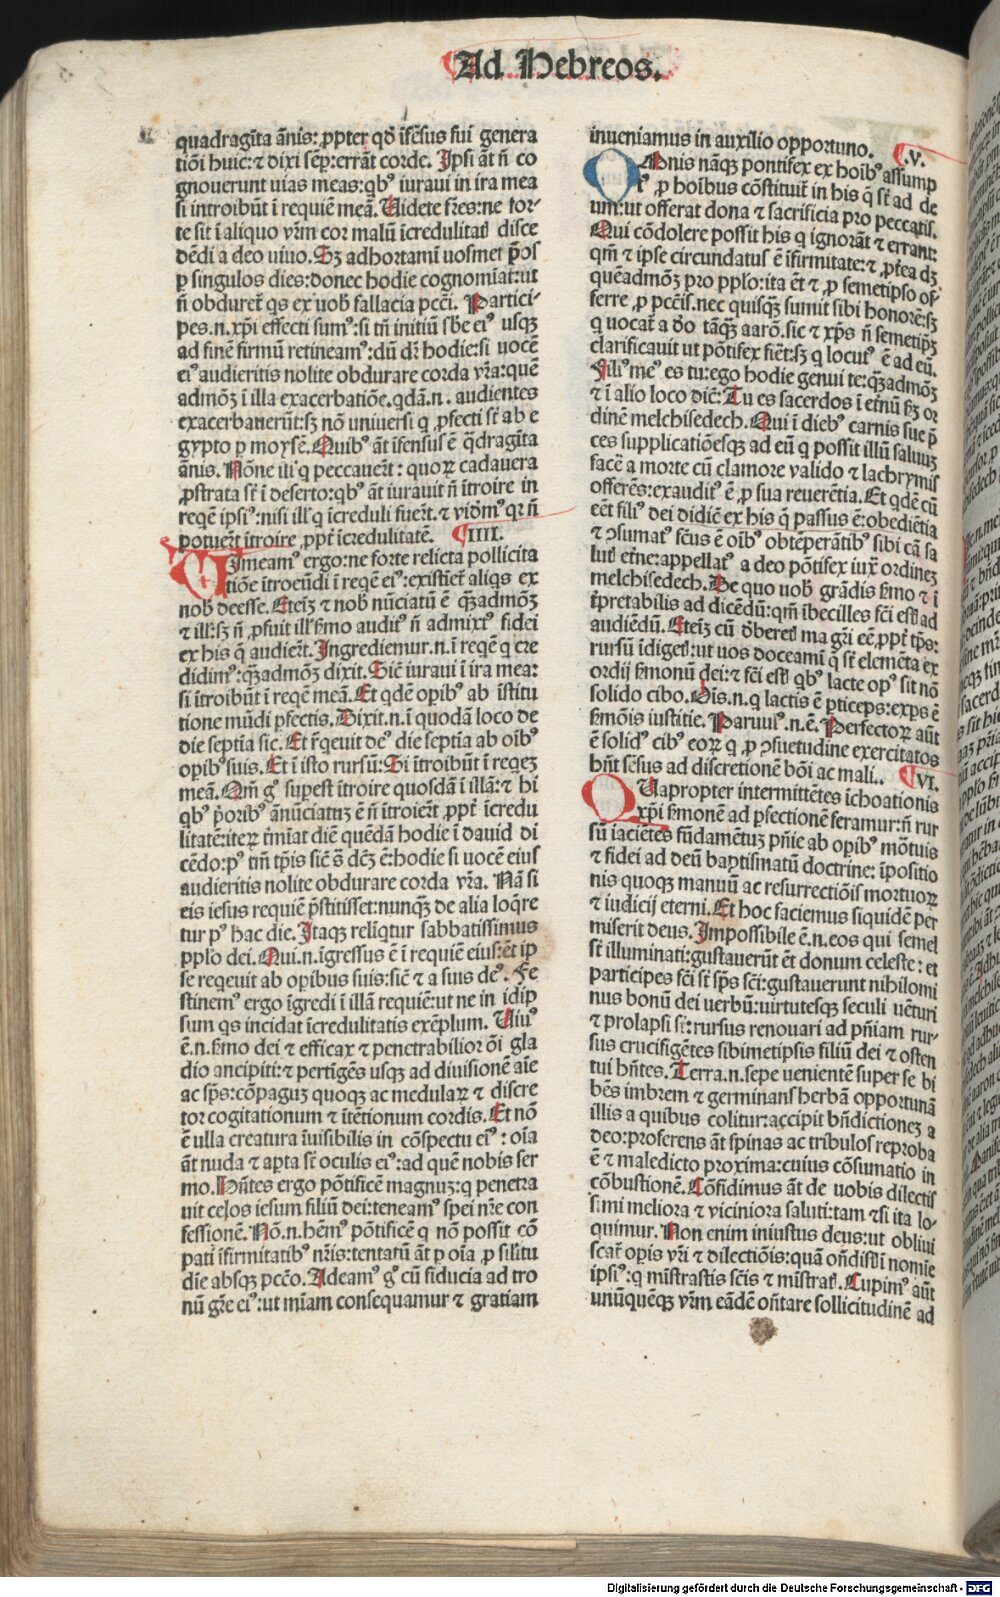 Ad Hebreos.
quadragĩta ãnis: ꝓpter qđ ĩfẽsus fui genera
tiõi huic: ⁊ dixi sẽp: errãt corde. Ipsi ãt ñ co
gnouerunt uias meas: qbꝰ iuraui in ira mea
si introibũt ĩ requiẽ meã. Uidete fr̃es: ne for⸗
te sit ĩ aliquo vr̃m cor malũ ĩcredulitatꝭ disce
dẽdi a deo uiuo. Sꝫ adhortamĩ uosmet ip̃os
ꝑ singulos dies: donec hodie cognomĩat: ut
ñ obduret̃ qs ex uobꝭ fallacia pcc̃i. Partici⸗
pes .n. xp̃i effecti sumꝰ: si tñ initiũ sb̃e eiꝰ usqꝫ
ad finẽ firmũ retineamꝰ: dũ dr̃ hodie: si uocẽ
eiꝰ audieritis nolite obdurare corda vr̃a: quẽ
admoꝫ ĩ illa exacerbatiõe. qdã .n. audientes
exacerbauer̃t: sꝫ nõ uniuersi q ꝓfecti st̃ ab e
gypto ꝑ moysẽ. Quibꝰ ãt ĩfensus ẽ q̃dragĩta
ãnis. Nõne illi q peccauer̃t: quoꝝ cadauera
ꝓstrata st̃ ĩ deserto: qbꝰ ãt iurauit ñ ĩtroire in
reqẽ ipsiꝰ: nisi ill q ĩcreduli fuer̃t. ⁊ vidẽmꝰ qr ñ
potuer̃t ĩtroire ꝓpt̃ ĩcredulitatẽ. ¶IIII.
TImeamꝰ ergo: ne forte relicta pollicita
tiõe ĩtroeũdi ĩ reqẽ eiꝰ: existiet̃ aliqs ex
nobꝭ deesse. Eteĩꝫ ⁊ nobꝭ nũciatũ ẽ qꝫadmoꝫ
⁊ ill: sꝫ ñ ꝓfuit ill sermo auditꝰ ñ admixtꝰ fidei
ex his q audier̃t. Ingrediemur .n. ĩ reqẽ q cre
didimꝰ: qꝫadmoꝫ dixit. Sic̃ iuraui ĩ ira mea:
si ĩtroibũt ĩ reqẽ meã. Et qdẽ oꝑibꝰ ab ĩstitu
tione mũdi ꝑfectis. Dixit .n. ĩ quodã loco de
die septĩa sic. Et r̃qeuit deꝰ die septĩa ab oĩbꝰ
oꝑibꝰ suis. Et ĩ isto rursũ: Si ĩtroibũt ĩ reqeꝫ
meã. Qm̃ gͦ suꝑest ĩtroire quosdã ĩ illã: ⁊ hi
qbꝰ p̃oribꝰ ãnũciatuꝫ ẽ ñ ĩtroier̃t ꝓpt̃ ĩcredu
litatẽ: iteꝝ t̃mĩat diẽ quẽdã hodie ĩ dauid di
cẽdo: pꝰ tm̃ tp̃is sic̃ s̃ dc̃ꝫ ẽ: hodie si uocẽ eius
audieritis nolite obdurare corda vr̃a. Nã si
eis iesus requiẽ p̃stitisset: nunqꝫ de alia loq̃re
tur pꝰ hac die. Itaqꝫ relĩqtur sabbatissimus
pp̃lo dei. Qui .n. ĩgressus ẽ ĩ requiẽ eius: et̃ ip
se reqeuit ab oꝑibus suis: sic̃ ⁊ a suis deꝰ. Fe
stinemꝰ ergo ĩgredi ĩ illã requiẽ: ut ne in idip
sum qs incidat ĩcredulitatis exẽplum. Uiuꝰ
ẽ .n. s̃mo dei ⁊ efficax ⁊ penetrabilior õi gla
dio ancipiti: ⁊ pertĩgẽs usqꝫ ad diuisionẽ aĩe
ac sp̃s: cõpaguꝫ quoqꝫ ac medulaꝝ ⁊ discre
tor cogitationum ⁊ ĩtẽtionum cordis. Et nõ
ẽ ulla creatura ĩuisibilis in cõspectu eiꝰ: oĩa
ãt nuda ⁊ aꝑta st̃ oculis eiꝰ: ad quẽ nobis ser
mo. Hñtes ergo põtificẽ magnuꝫ: q penetra
uit celos iesum filiũ dei: teneamꝰ spei nr̃e con
fessionẽ. Nõ .n. hẽmꝰ põtificẽ q nõ possit cõ
pati ĩfirmitatibꝰ nr̃is: tentatũ ãt ꝑ oĩa ꝓ sil̃itu
die absqꝫ pcc̃o. Adeamꝰ gͦ cũ fiducia ad tro
nũ gr̃e eiꝰ: ut mĩam consequamur ⁊ gratiam
inueniamus in auxilio opportuno. ¶.V.
OMnis nãqꝫ pontifex ex hoĩbꝰ assump
tꝰ ꝓ hoĩbus cõstituit̃ in his q st̃ ad de
um: ut offerat dona ⁊ sacrificia pro peccatis.
Qui cõdolere possit his q ignorãt ⁊ errant:
qm̃ ⁊ ipse circundatus ẽ ĩfirmitate: ⁊ ꝓpt̃ea dꝫ
quẽadmoꝫ pro pp̃lo: ita et̃ ⁊ ꝓ semetipso of⸗
ferre ꝓ pcc̃is. nec quisqꝫ sumit sibi honorẽ: sꝫ
q uocat̃ a deo tãqꝫ aarõ. sic ⁊ xp̃s ñ semetip̃ꝫ
clarificauit ut põtifex fiet̃: sꝫ q locutꝰ ẽ ad eũ.
Filiꝰ meꝰ es tu: ego hodie genui te: qꝫadmoꝫ
⁊ ĩ alio loco dic̃: Tu es sacerdos ĩ et̃nũ sꝫ or
dinẽ melchisedech. Qui ĩ diebꝰ carnis sue p̃
ces supplicatiõesqꝫ ad eũ q possit illũ saluuꝫ
facẽ a morte cũ clamore valido ⁊ lachrymis
offerẽs: exauditꝰ ẽ ꝓ sua reuerẽtia. Et qdẽ cũ
eẽt filiꝰ dei didic̃ ex his q passus ẽ: obediẽtia
⁊ ꝯsumatꝰ fc̃us ẽ oĩbꝰ obtẽperãtibꝰ sibi cã sa
lutꝭ et̃ne: appellatꝰ a deo põtifex iux̃ ordineꝫ
melchisedech. De quo uobꝭ grãdis s̃mo ⁊ ĩ
t̃pretabilis ad dicẽdũ: qm̃ ĩbecilles fc̃i estꝭ ad
audiẽdũ. Eteĩꝫ cũ deberetꝭ mag̃ri eẽ ꝓpt̃ tp̃s:
rursũ ĩdigetꝭ: ut uos doceamĩ q st̃ elemẽta ex
ordij s̃monũ dei: ⁊ fc̃i estꝭ qbꝰ lacte opꝰ sit nõ
solido cibo. Oĩs .n. q lactis ẽ ꝑticeps: exꝑs ẽ
s̃mõis iustitie. Paruulꝰ .n. ẽ. Perfectoꝝ aũt
ẽ solidꝰ cibꝰ eoꝝ q ꝓ ꝯsuetudine exercitatos
hñt sẽsus ad discretionẽ bõi ac mali.. ¶VI.
QUapropter intermittẽtes ĩchoationis
xp̃i s̃monẽ ad ꝑfectionẽ feramur: ñ rur
sũ iaciẽtes fũdamẽtuꝫ pñie ab oꝑibꝰ mõtuis
⁊ fidei ad deũ baptismatũ doctrine: ĩpositio
nis quoqꝫ manuũ ac resurrectiõis mortuoꝝ
⁊ iudicij eterni. Et hoc faciemus siquidẽ per
miserit deus. Impossibile ẽ .n. eos qui semel
st̃ illuminati: gustauerũt et̃ donum celeste: et
participes fc̃i st̃ sp̃s sc̃i: gustauerunt nihilomi
nus bonũ dei uerbũ: uirtutesqꝫ seculi uẽturi
⁊ prolapsi st̃: rursus renouari ad pñiam rur⸗
sus crucifigẽtes sibimetipsis filiũ dei ⁊ osten
tui hñtes. Terra .n. sepe uenientẽ super se bi
bẽs imbrem ⁊ germinans herbã opportunã
illis a quibus colitur: accipit bñdictioneꝫ a
deo: proferens ãt spinas ac tribulos reproba
ẽ ⁊ maledicto proxima: cuius cõsumatio in
cõbustionẽ. Cõfidimus ãt de uobis dilectif
simi meliora ⁊ viciniora saluti: tam ⁊si ita lo⸗
quimur. Non enim iniustus deus: ut obliui
scat̃ oꝑis vr̃i ⁊ dilectiõis: quã oñdistꝭ ĩ nomĩe
ipsiꝰ: q mĩstrastis sc̃is ⁊ mĩstratꝭ. Cupimꝰ aũt
unũquẽqꝫ vr̃m eãdẽ oñtare sollicitudinẽ ad
Digitalisierung gefördert durch die Deutsche Forschungsgemeinschaft - DFG